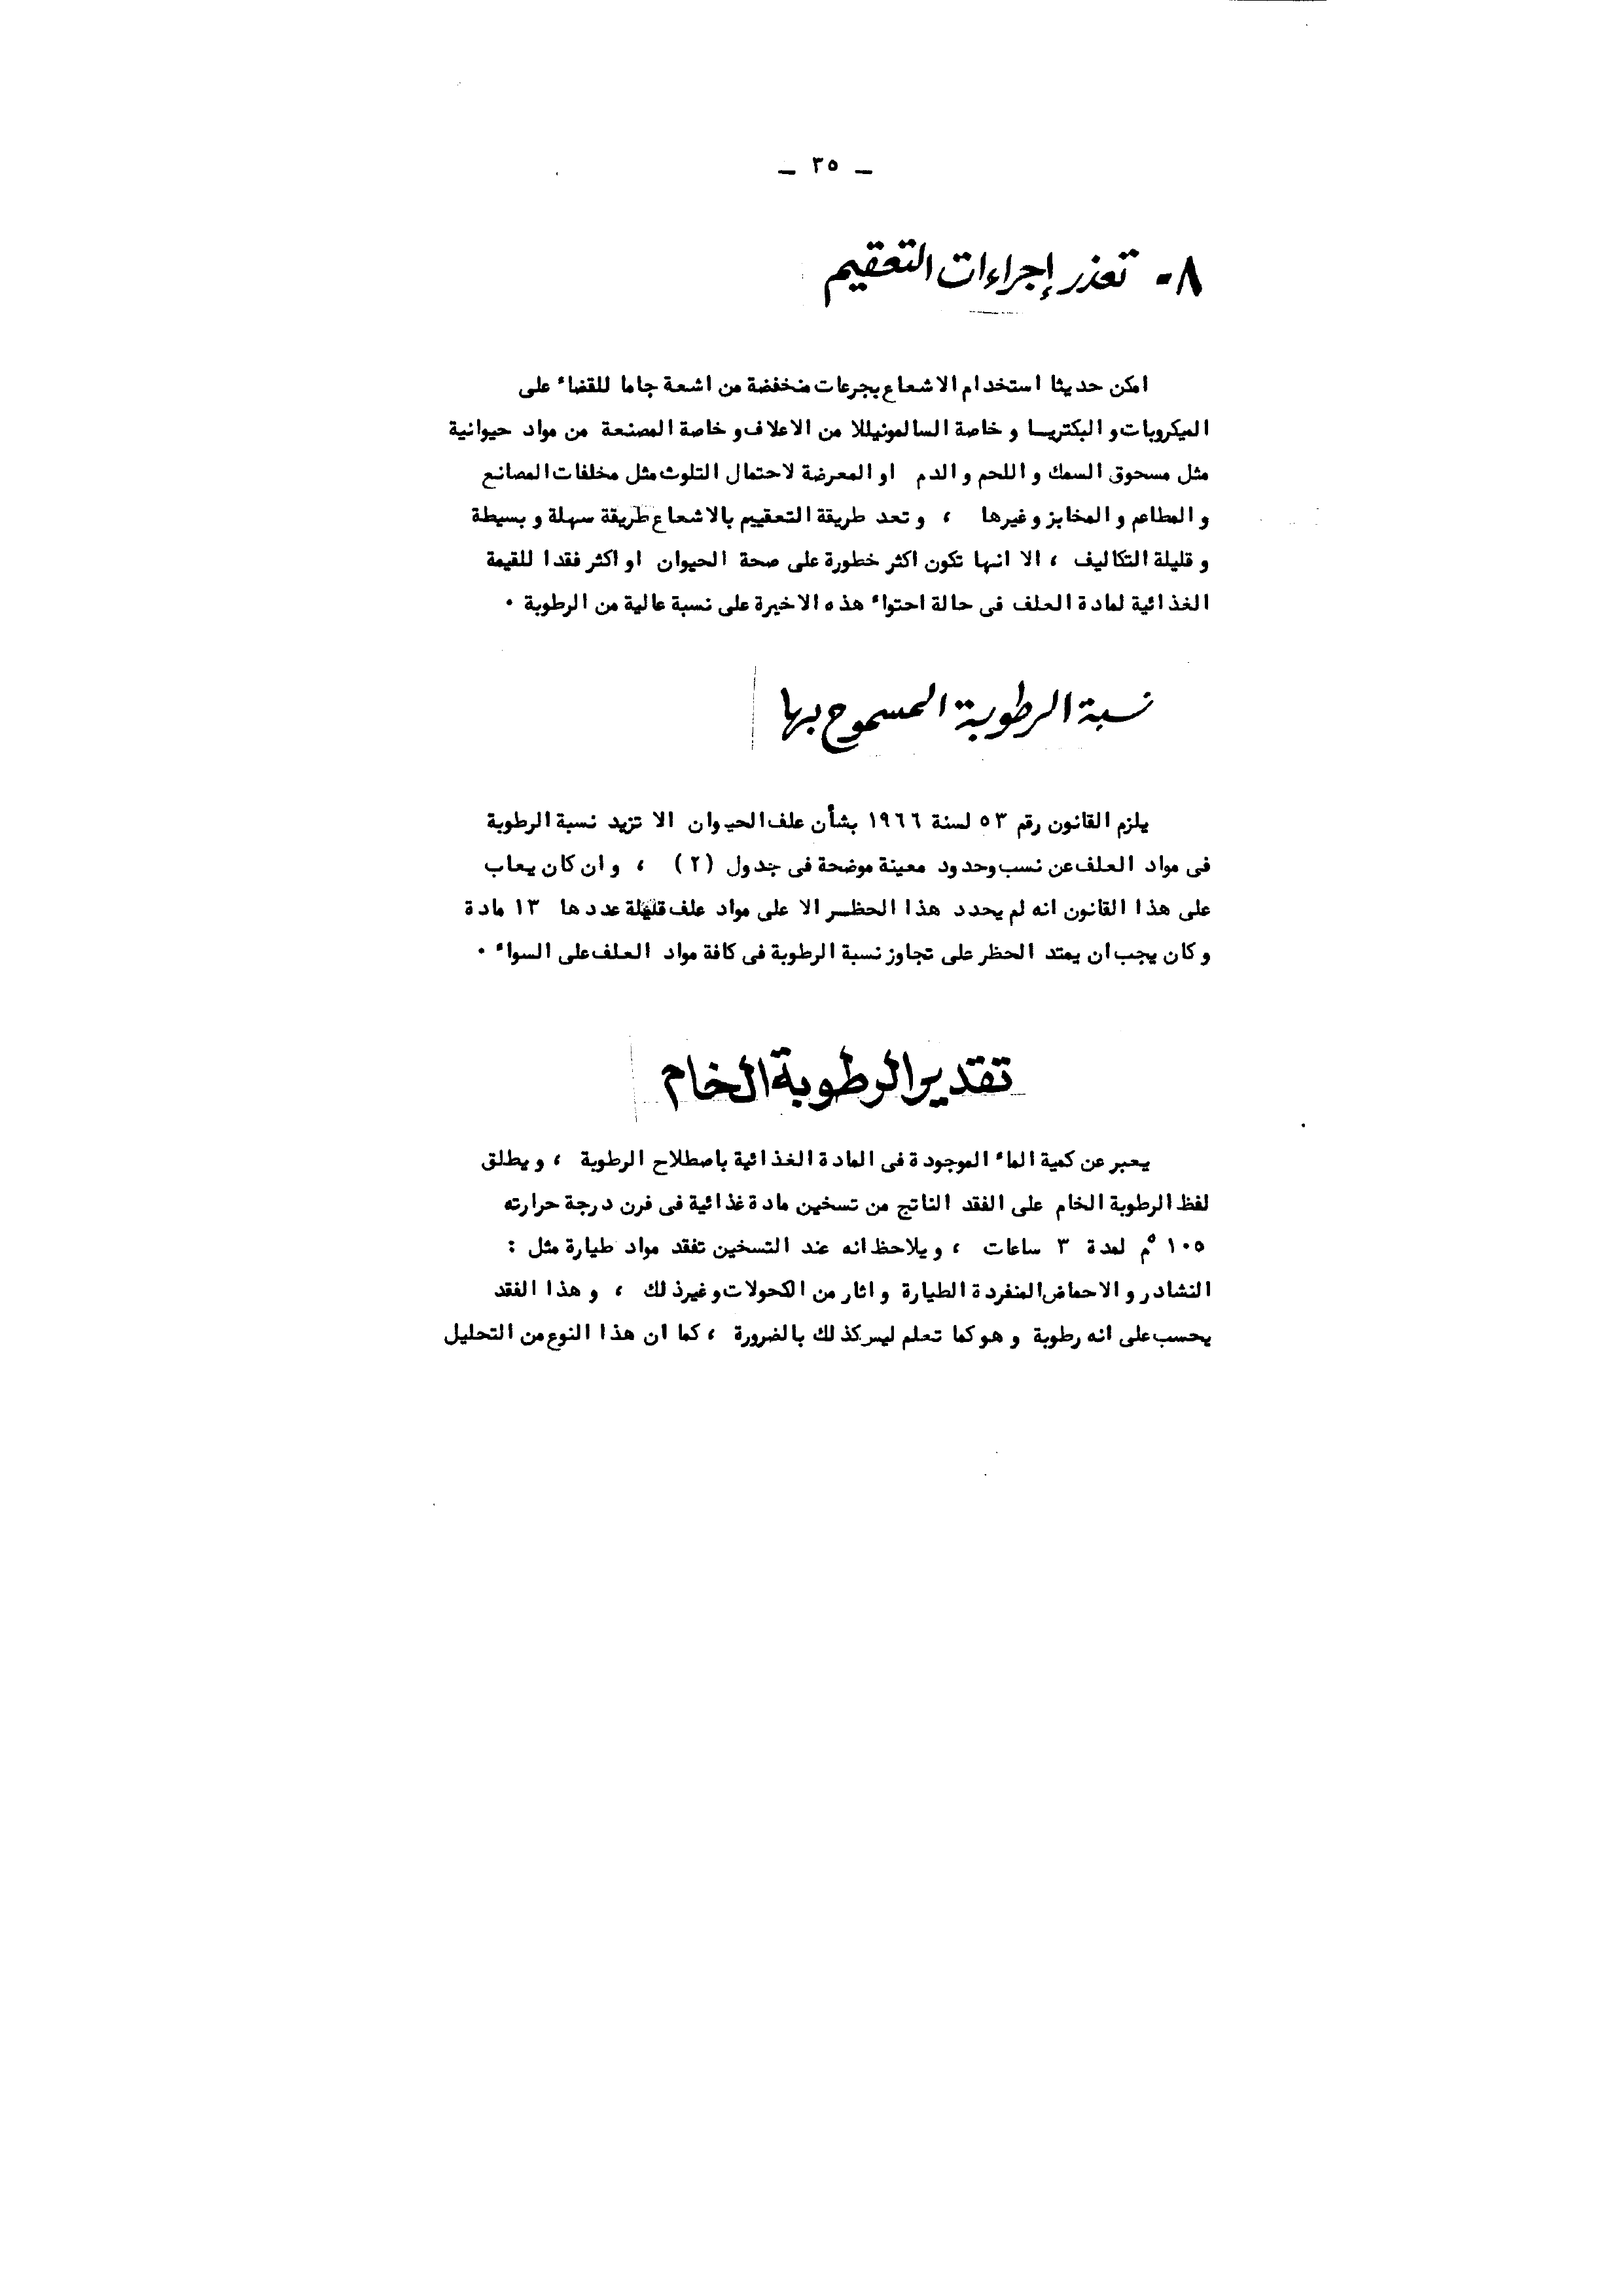 ـ ٣٥ ـ
٨- تعذر إجراءات التعقيم
امكن حديثا استخدام الاشعاع بجرعات منخفضة من اشعة جاما للقضاء على
الميكروبات و البكتريـا و خاصة السالمونيللا من الاعلاف و خاصة المصنعة من مواد حيوانية
مثل مسحوق السمك و اللحم و الدم او المعرضة لاحتمال التلوث مثل مخلفات المصانع
و المطاعم و المخابز و غيرها ، و تعد طريقة التعقيم بالاشعاع طريقة سهلة و بسيطة
و قليلة التكاليف ، الا انها تكون اكثر خطورة على صحة الحيوان او اكثر فقدا للقيمة
الغذائية لمادة العلف فى حالة احتواء هذه الاخيرة على نسبة عالية من الرطوبة ٠
نسبة الرطوبة المسموح بها
يلزم القانون رقم ٥٣ لسنة ١٩٦٦ بشأن علف الحيوان الا تزيد نسبة الرطوبة
فى مواد العلف عن نسب وحدود معينة موضحة فى جدول (٢) ، و ان كان يعاب
على هذا القانون انه لم يحدد هذا الحظـر الا على مواد علف قليلة عددها ١٣ مادة
و كان يجب ان يمتد الحظر على تجاوز نسبة الرطوبة فى كافة مواد العلف على السواء ٠
تقدير الرطوبة الخام
يعبر عن كمية الماء الموجودة فى المادة الغذائية باصطلاح الرطوبة ، و يطلق
لفظ الرطوبة الخام على الفقد الناتج من تسخين مادة غذائية فى فرن درجة حرارته
١٠٥ °م لمدة ٣ ساعات ، و يلاحظ انه عند التسخين تفقد مواد طيارة مثل :
النشادر و الاحماض المنفردة الطيارة و اثار من الكحولات و غير ذلك ، و هذا الفقد
يحسب على انه رطوبة و هو كما تعلم ليس كذلك بالضرورة ، كما ان هذا النوع من التحليل